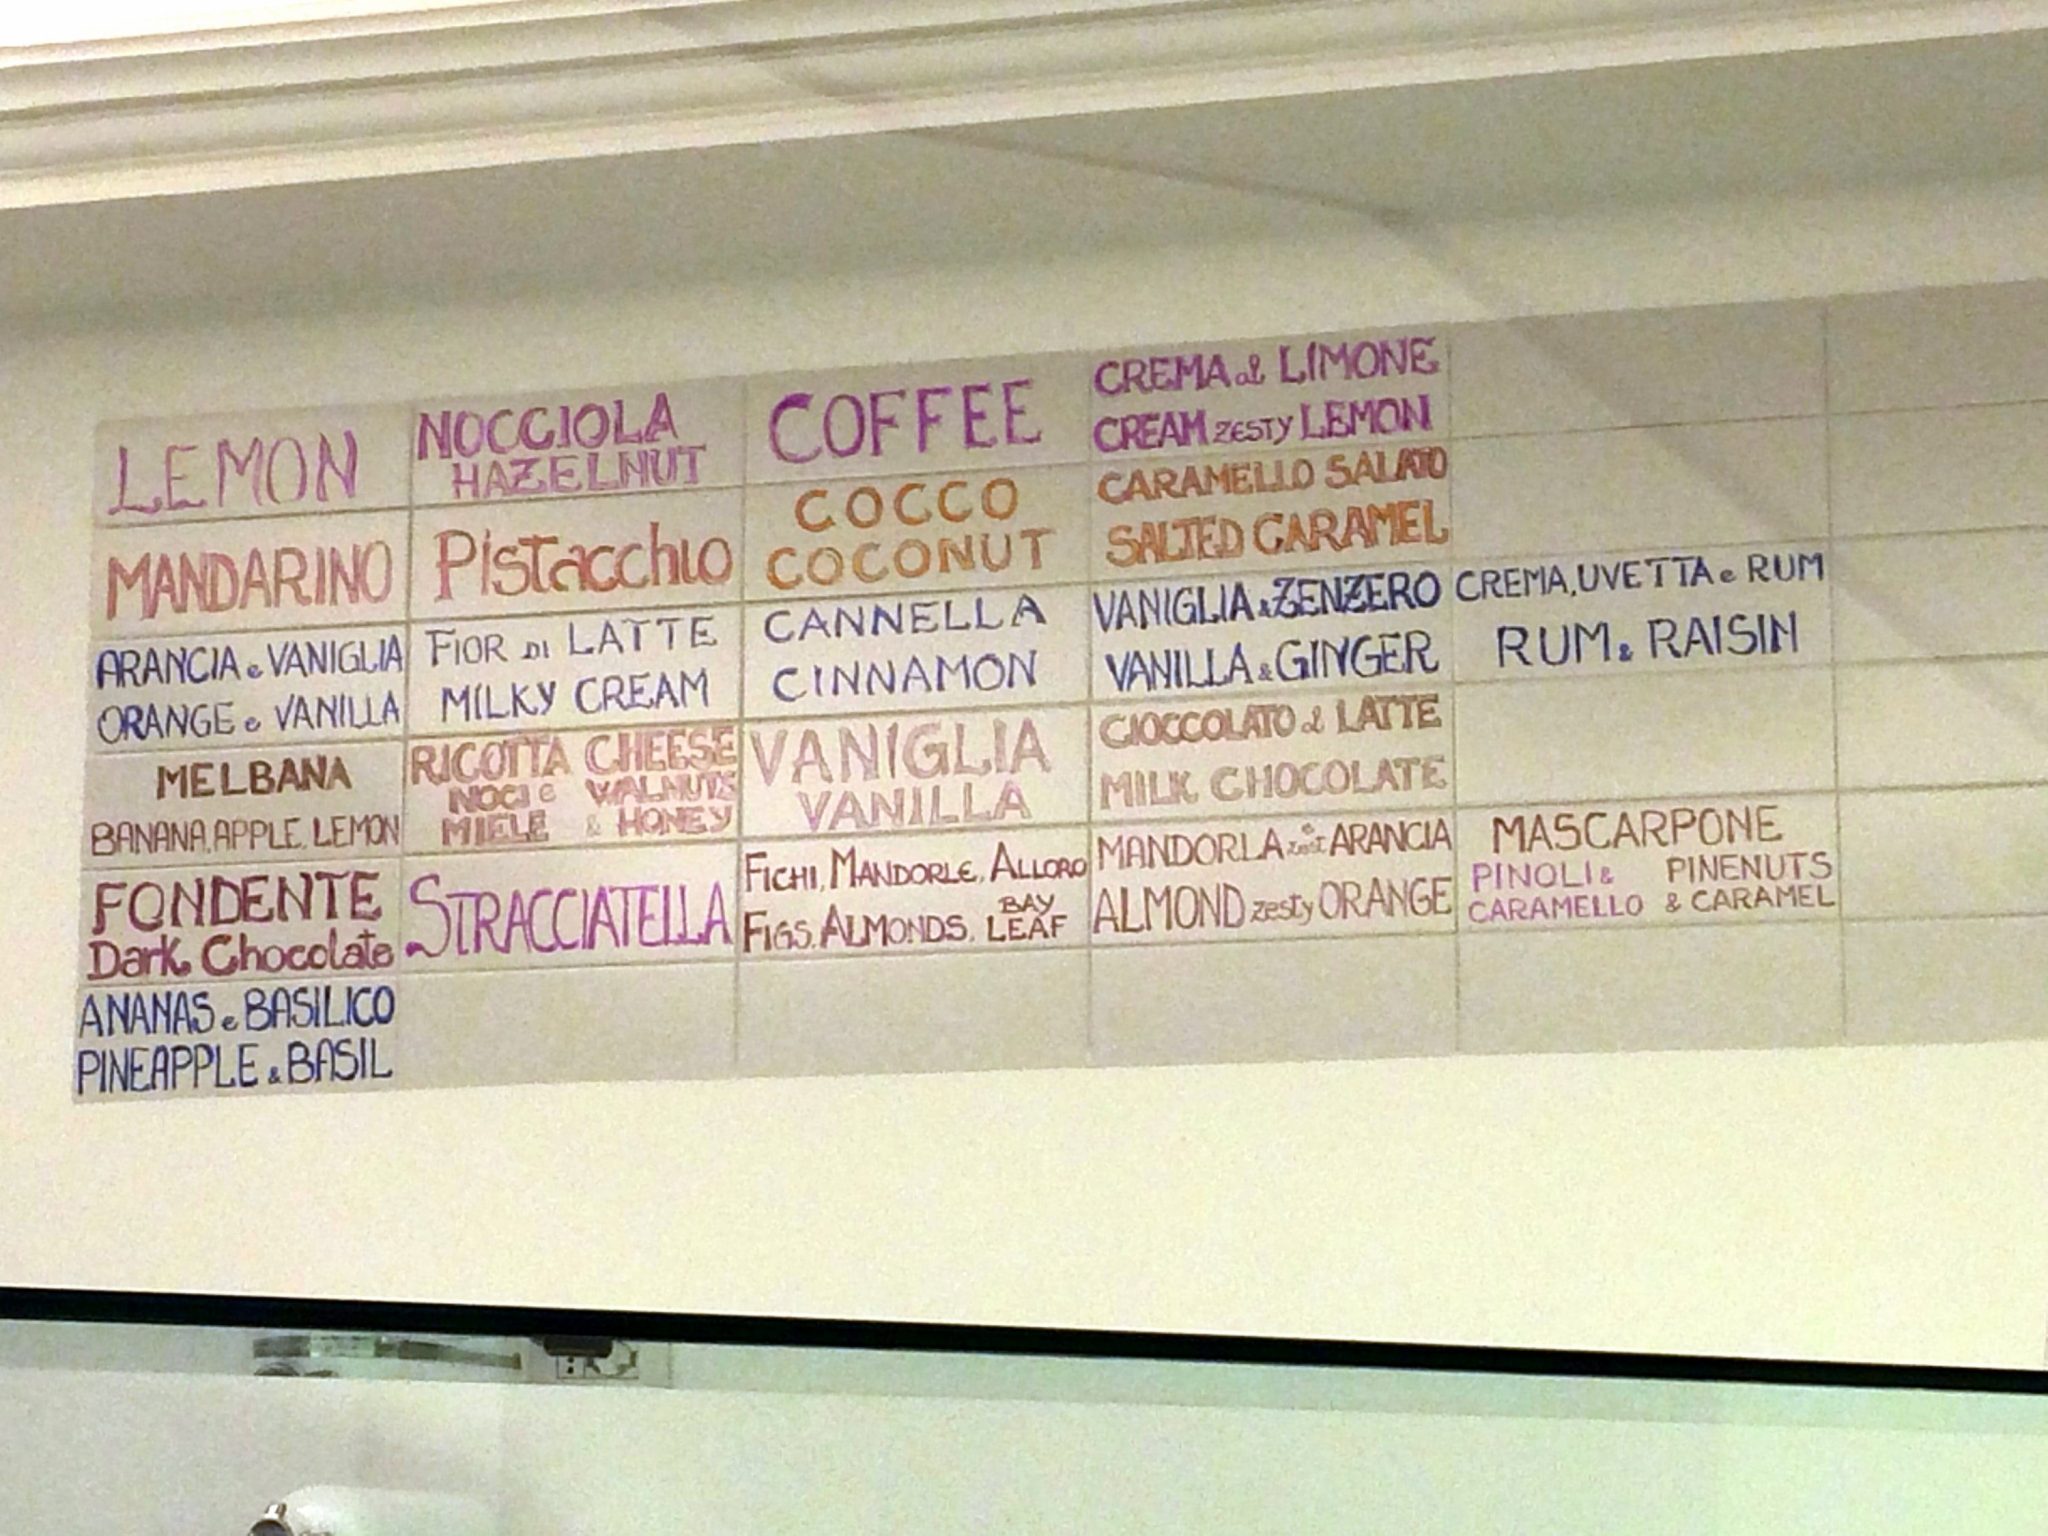 LEMON
MANDARINO
ARANCIA e VANIGLIA
ORANGE e VANILLA
MELBANA
BANANA, APPLE, LEMON
FONDENTE
Dark Chocolate
ANANAS e BASILICO
PINEAPPLE & BASIL
NOCCIOLA
HAZELNUT
Pistacchio
FIOR DI LATTE
MILKY CREAM
RICOTTA CHEESE
NOCI e WALNUTS
MIELE & HONEY
STRACCIATELLA
COFFEE
COCCO
COCONUT
CANNELLA
CINNAMON
VANIGLIA
VANILLA
FICHI, MANDORLE, ALLORO
FIGS, ALMONDS, BAY LEAF
CREMA al LIMONE
CREAM ZESTY LEMON
CARAMELLO SALATO
SALTED CARAMEL
VANIGLIA & ZENZERO
VANILLA & GINGER
CIOCCOLATO al LATTE
MILK CHOCOLATE
MANDORLA e zest ARANCIA
ALMOND zesty ORANGE
CREMA, UVETTA e RUM
RUM & RAISIN
MASCARPONE
PINOLI & PINENUTS
CARAMELLO & CARAMEL